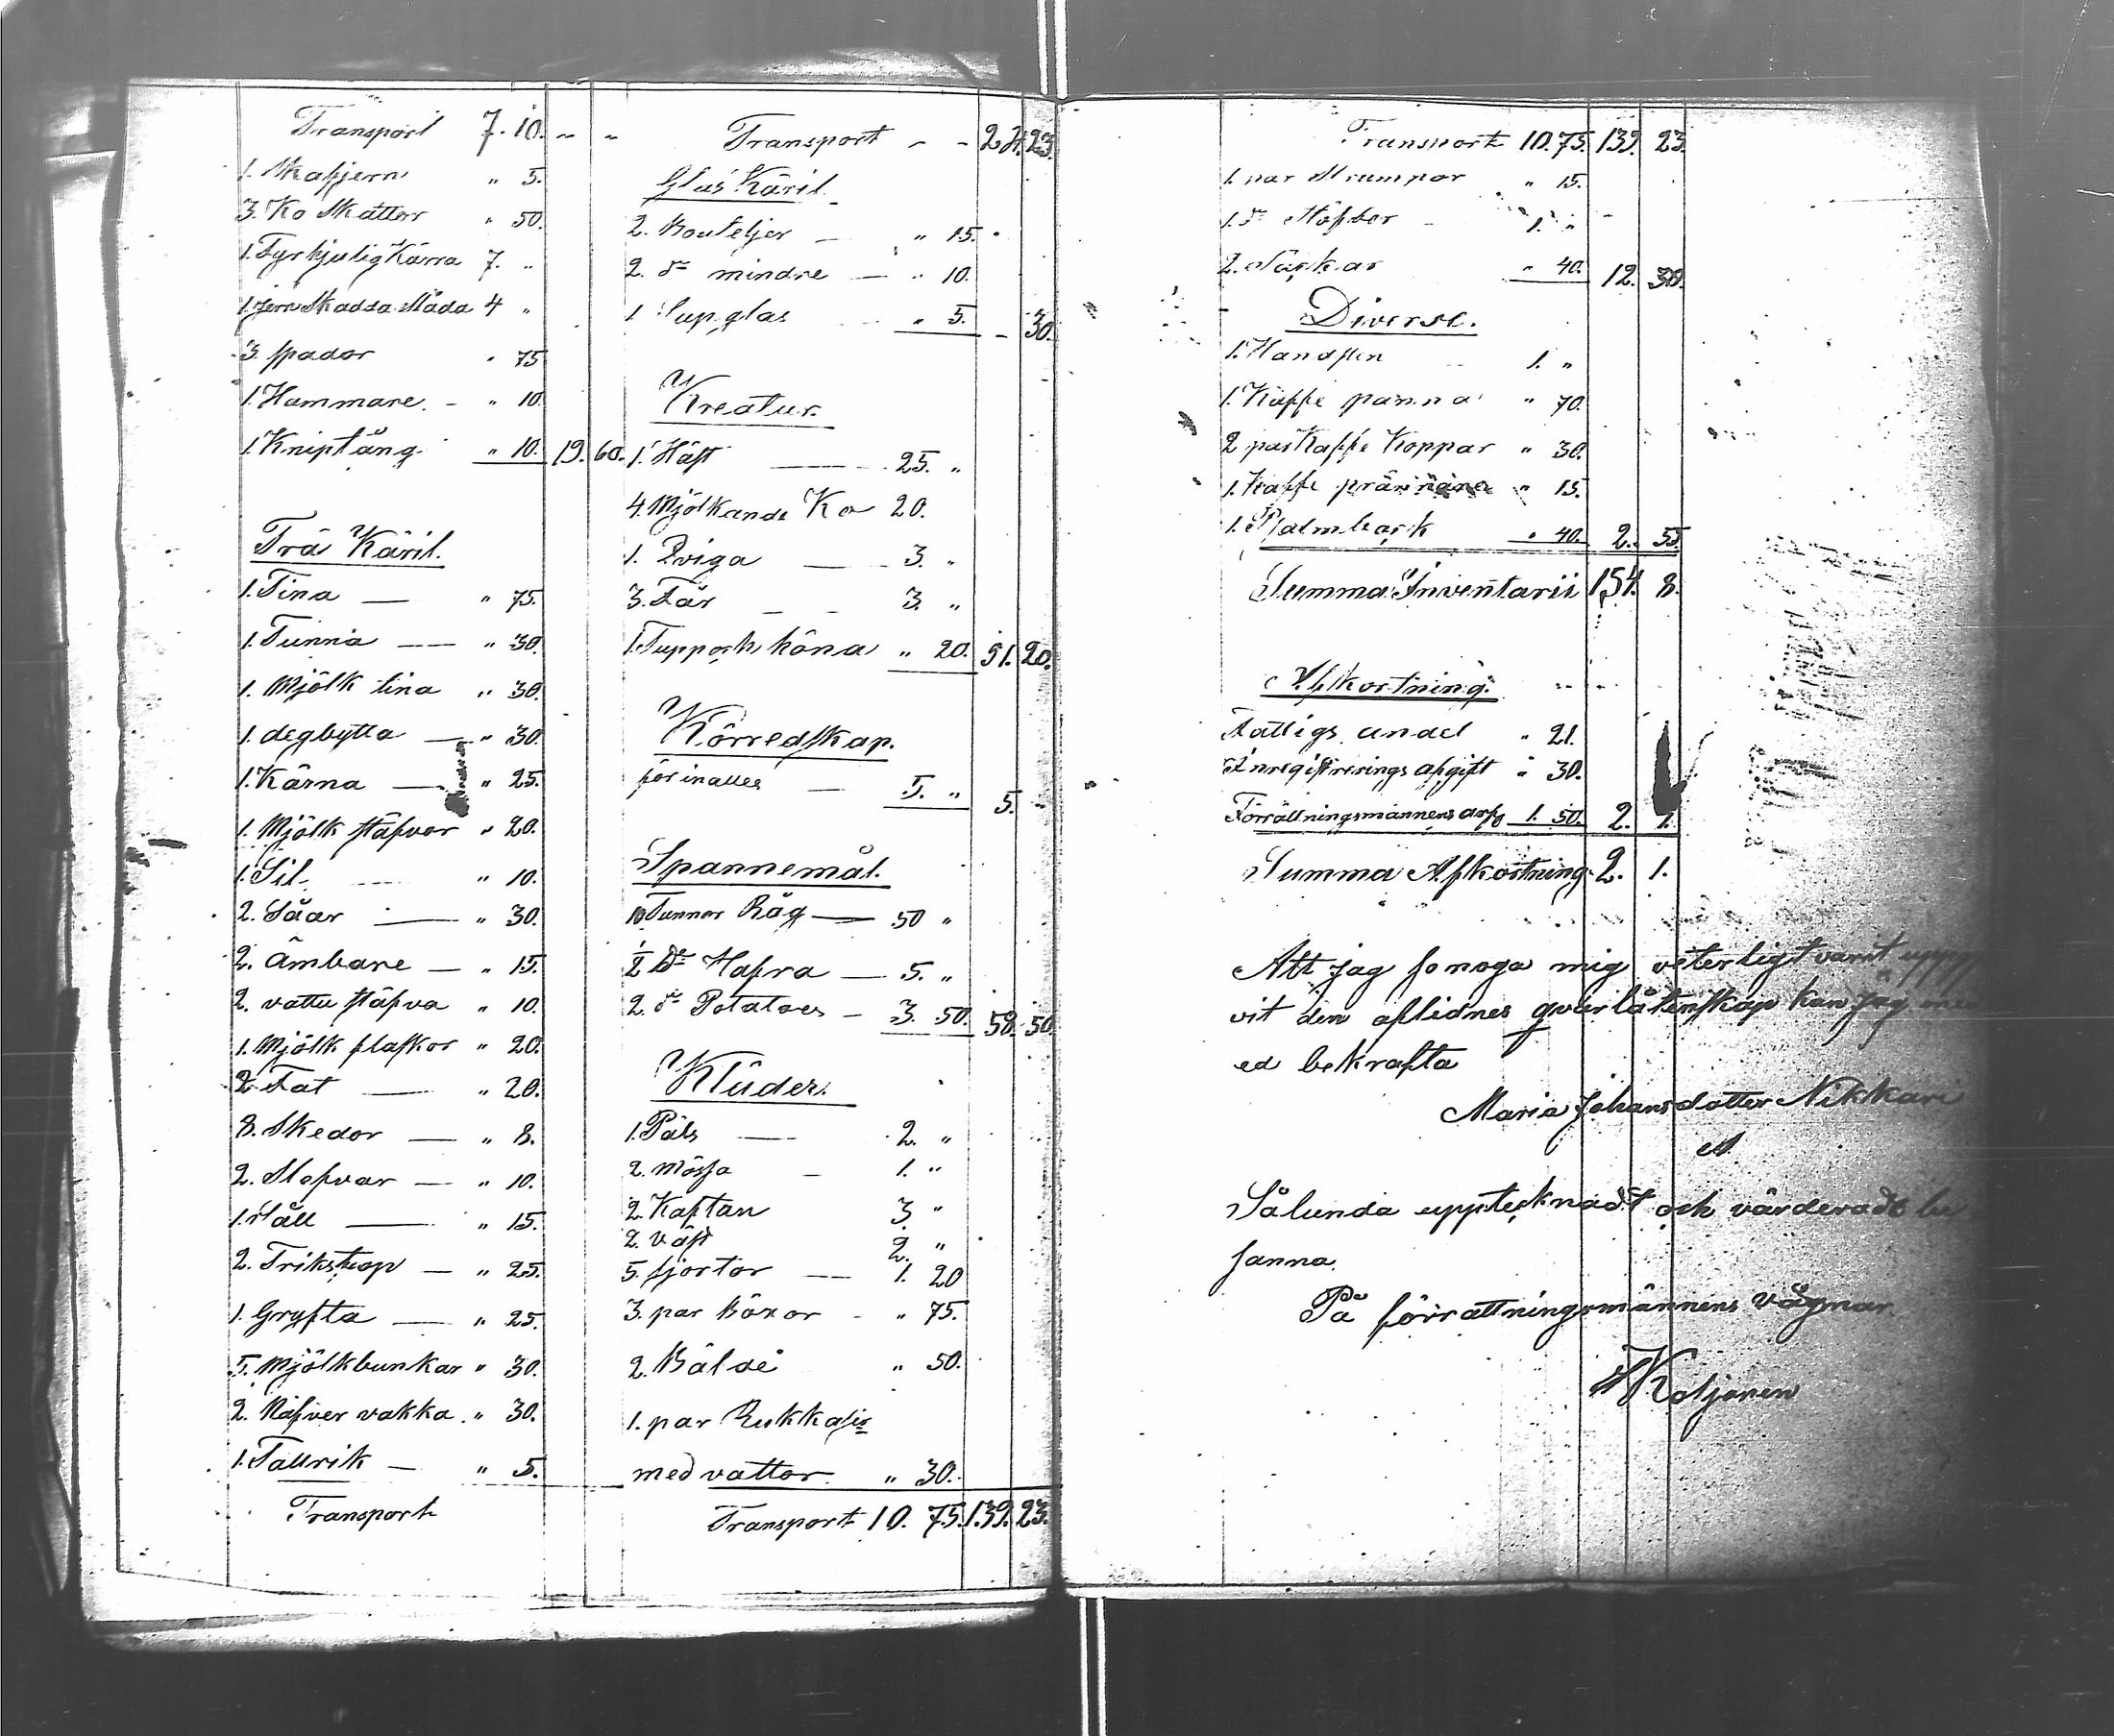 Transport 7. 10. " "
1. Skafjern " 5.
3. Ko Skällor " 50.
1. Fyrhjulig Kärra 7. "
1. Jern Skodda Släda 4 "
3. spador " 75
1. Hammare. - " 10.
1. Kniptång " 10. 19. 60.
Trä Käril.
1. Tina — " 75.
1. Tunna — " 30.
1. Mjölk tina " 30.
1. degbytta — " 30.
1. Kärna — " 25.
1. Mjölk stäfvor " 20.
1. Sil " 10.
2. Såar — " 30.
2. Ämbare — " 15.
2. vattu stäfva " 10.
1. Mjölk flaskor " 20.
2 Fat — " 20.
8. Skedor — " 8.
2. Slefvar — " 10.
1. Såll — " 15.
2. Trikstop — " 25.
1. Grysta — " 25.
5. Mjölkbunkar " 30.
2. Näfver vakka. " 30.
1. Tallrik — " 5.
Transport
Transport - - 24. 23.
Glas Käril.
2. Bouteljer — " 15.
2. do mindre — " 10.
1 Supglas " 5. - 30.
Kreatur.
1. Häst — 25. "
4. Mjölkande Ko 20.
1. Qviga — 3. "
3. Får — 3. "
1. Tupp och höna " 20. 51. 20.
Körredskap.
för inalles — 5. " 5. -
Spannemål.
10 Tunnor Råg — 50 "
1/2 do Hafra — 5. "
2. do Potatoes — 3. 50. 58. 50
Kläder.
1. Päls — 2. "
2. mössa — 1. "
2. Kaftan 3 "
2. väst 2. "
5. sjortor — 1. 20
3. par Böxor - " 75.
2. Bälde " 50.
1. par Rukkasir
med vattor " 30.
Transport 10. 75. 139. 23.
Transport 10. 75. 139. 23.
1. par Strumpor " 15.
1. do Stöflor - 1. "
2. Säckar " 40. 12. 30.
Diverse.
1. Handsten 1. "
1. Kaffe panna " 70.
2 par Kaffe Koppar " 30.
1. Kaffe " 15.
1. Psalmbok " 40. 2. 55.
Summa Inventarii 154. 8.
Afkortning.
Fattigs andel " 21.
Inregistrerings afgift " 30.
Förrättningsmännens arfv 1. 50. 2. 1.
Summa Afkortning 2. 1.
Att jag så noga mig veterligt varit uppg
vit den aflidnes qvarlåtenskap kan jag med
ed bekrafta
Maria Johansdotter Nikkari
Sålunda upptecknadt och värderadt be
sanna.
På förrattningsmännens vägnar
Koljonen